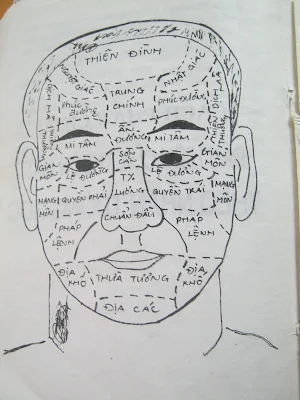 THIÊN ĐÌNH
NGUYỆT GIÁC
NHẬT GIÁC
TRUNG
CHÍNH
PHÚC
ĐƯỜNG
PHÚC ĐƯỜNG
ẤN
ĐƯỜNG
MI TÂM
MI TÂM
SƠN
CĂN
GIAN
MÔN
GIAN
MÔN
LỆ ĐƯỜNG
LỆ ĐƯỜNG
TỴ
LƯƠNG
QUYỀN PHẢI
QUYỀN TRÁI
MẠNG
MÔN
MẠNG
MÔN
CHUẨN ĐẦU
PHÁP
LỆNH
PHÁP
LỆNH
ĐỊA
KHỐ
THỪA TƯƠNG
ĐỊA
KHỐ
ĐỊA CÁC